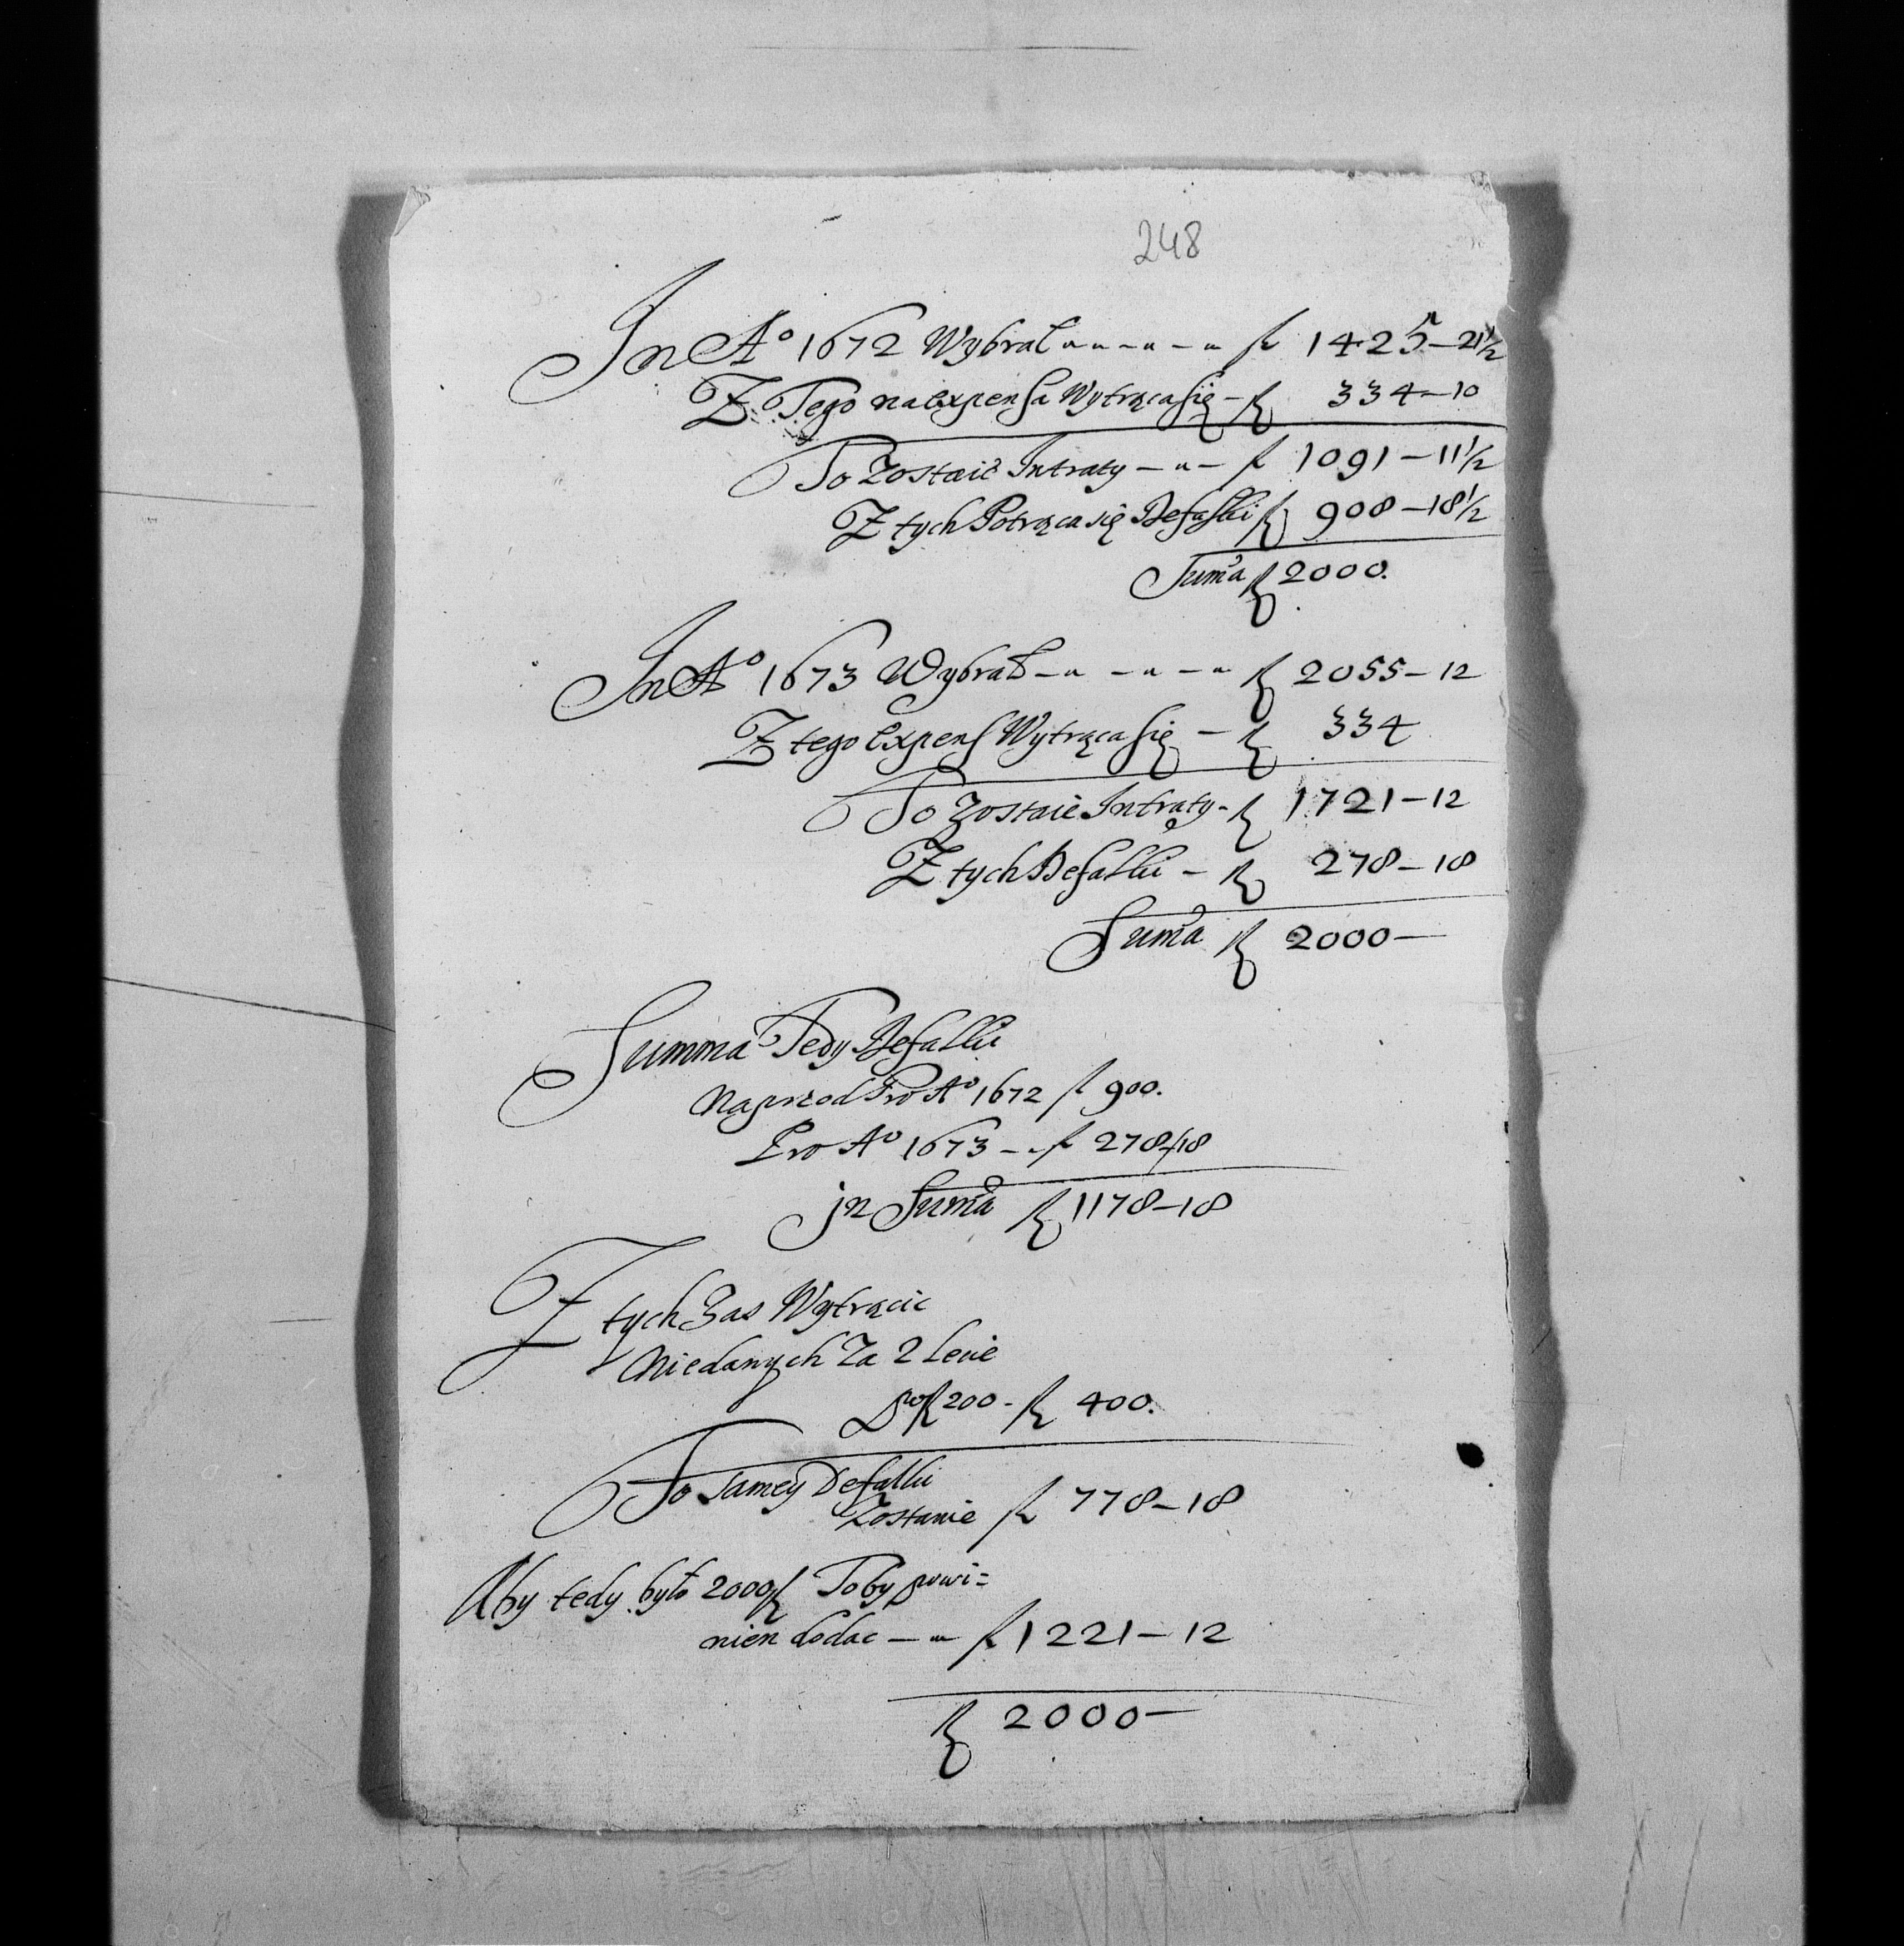 248
In Aº 1672 Wybrał - - - - - fl 1425-21½
Z Tego na Expensa Wytrąca się - fl 334-10
To Zostaie Intraty - - - fl 1091-11½
Z tych Potrąca się Defalki fl 908-18½
Suma fl 2000.
In Aº 1673 Wybrał - - - - - fl 2055-12
Z tego Expens Wytrąca się - fl 334
To zostaie Intraty - fl 1721-12
Z tych Defalki - fl 278-18
Suma fl 2000-
Summa Tedy Defalki
Naprzod Pro Aº 1672 fl 900.
Pro Aº 1673 - - fl 278-18
jn Suma fl 1178-18
Z tych Zas Wytrącic
Niedanych Za 2 Lecie
po fl 200 - fl 400.
To samey Defalki
Zostanie fl 778-18
Aby tedy było 2000 fl Toby powi=
nien dodac - - fl 1221-12
fl 2000-